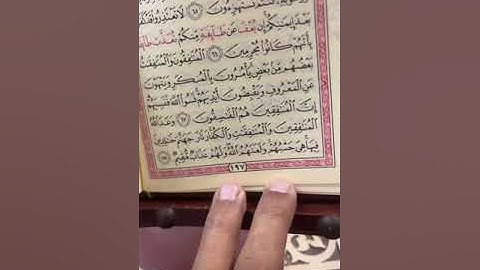 تَسْتَهْزِءُونَ ٦٥ لَا تَعْتَذِرُوا۟ قَدْ
بَعْدَ إِيمَٰنِكُمْ إِن نَّعْفُ عَن طَآئِفَةٍ مِّنكُمْ نُعَذِّبْ
بِأَنَّهُمْ كَانُوا۟ مُجْرِمِينَ ٦٦ ٱلْمُنَٰفِقُونَ وَٱلْمُنَٰفِقَٰتُ
بَعْضُهُم مِّنۢ بَعْضٍ يَأْمُرُونَ بِٱلْمُنكَرِ وَيَنْهَوْنَ
عَنِ ٱلْمَعْرُوفِ وَيَقْبِضُونَ أَيْدِيَهُمْ نَسُوا۟ ٱللَّهَ فَنَسِيَهُمْ
إِنَّ ٱلْمُنَٰفِقِينَ هُمُ ٱلْفَٰسِقُونَ ٦٧ وَعَدَ ٱللَّهُ
ٱلْمُنَٰفِقِينَ وَٱلْمُنَٰفِقَٰتِ وَٱلْكُفَّارَ نَارَ جَهَنَّمَ خَٰلِدِينَ
فِيهَا هِىَ حَسْبُهُمْ وَلَعَنَهُمُ ٱللَّهُ وَلَهُمْ عَذَابٌ مُّقِيمٌ ٦٨
١٩٧